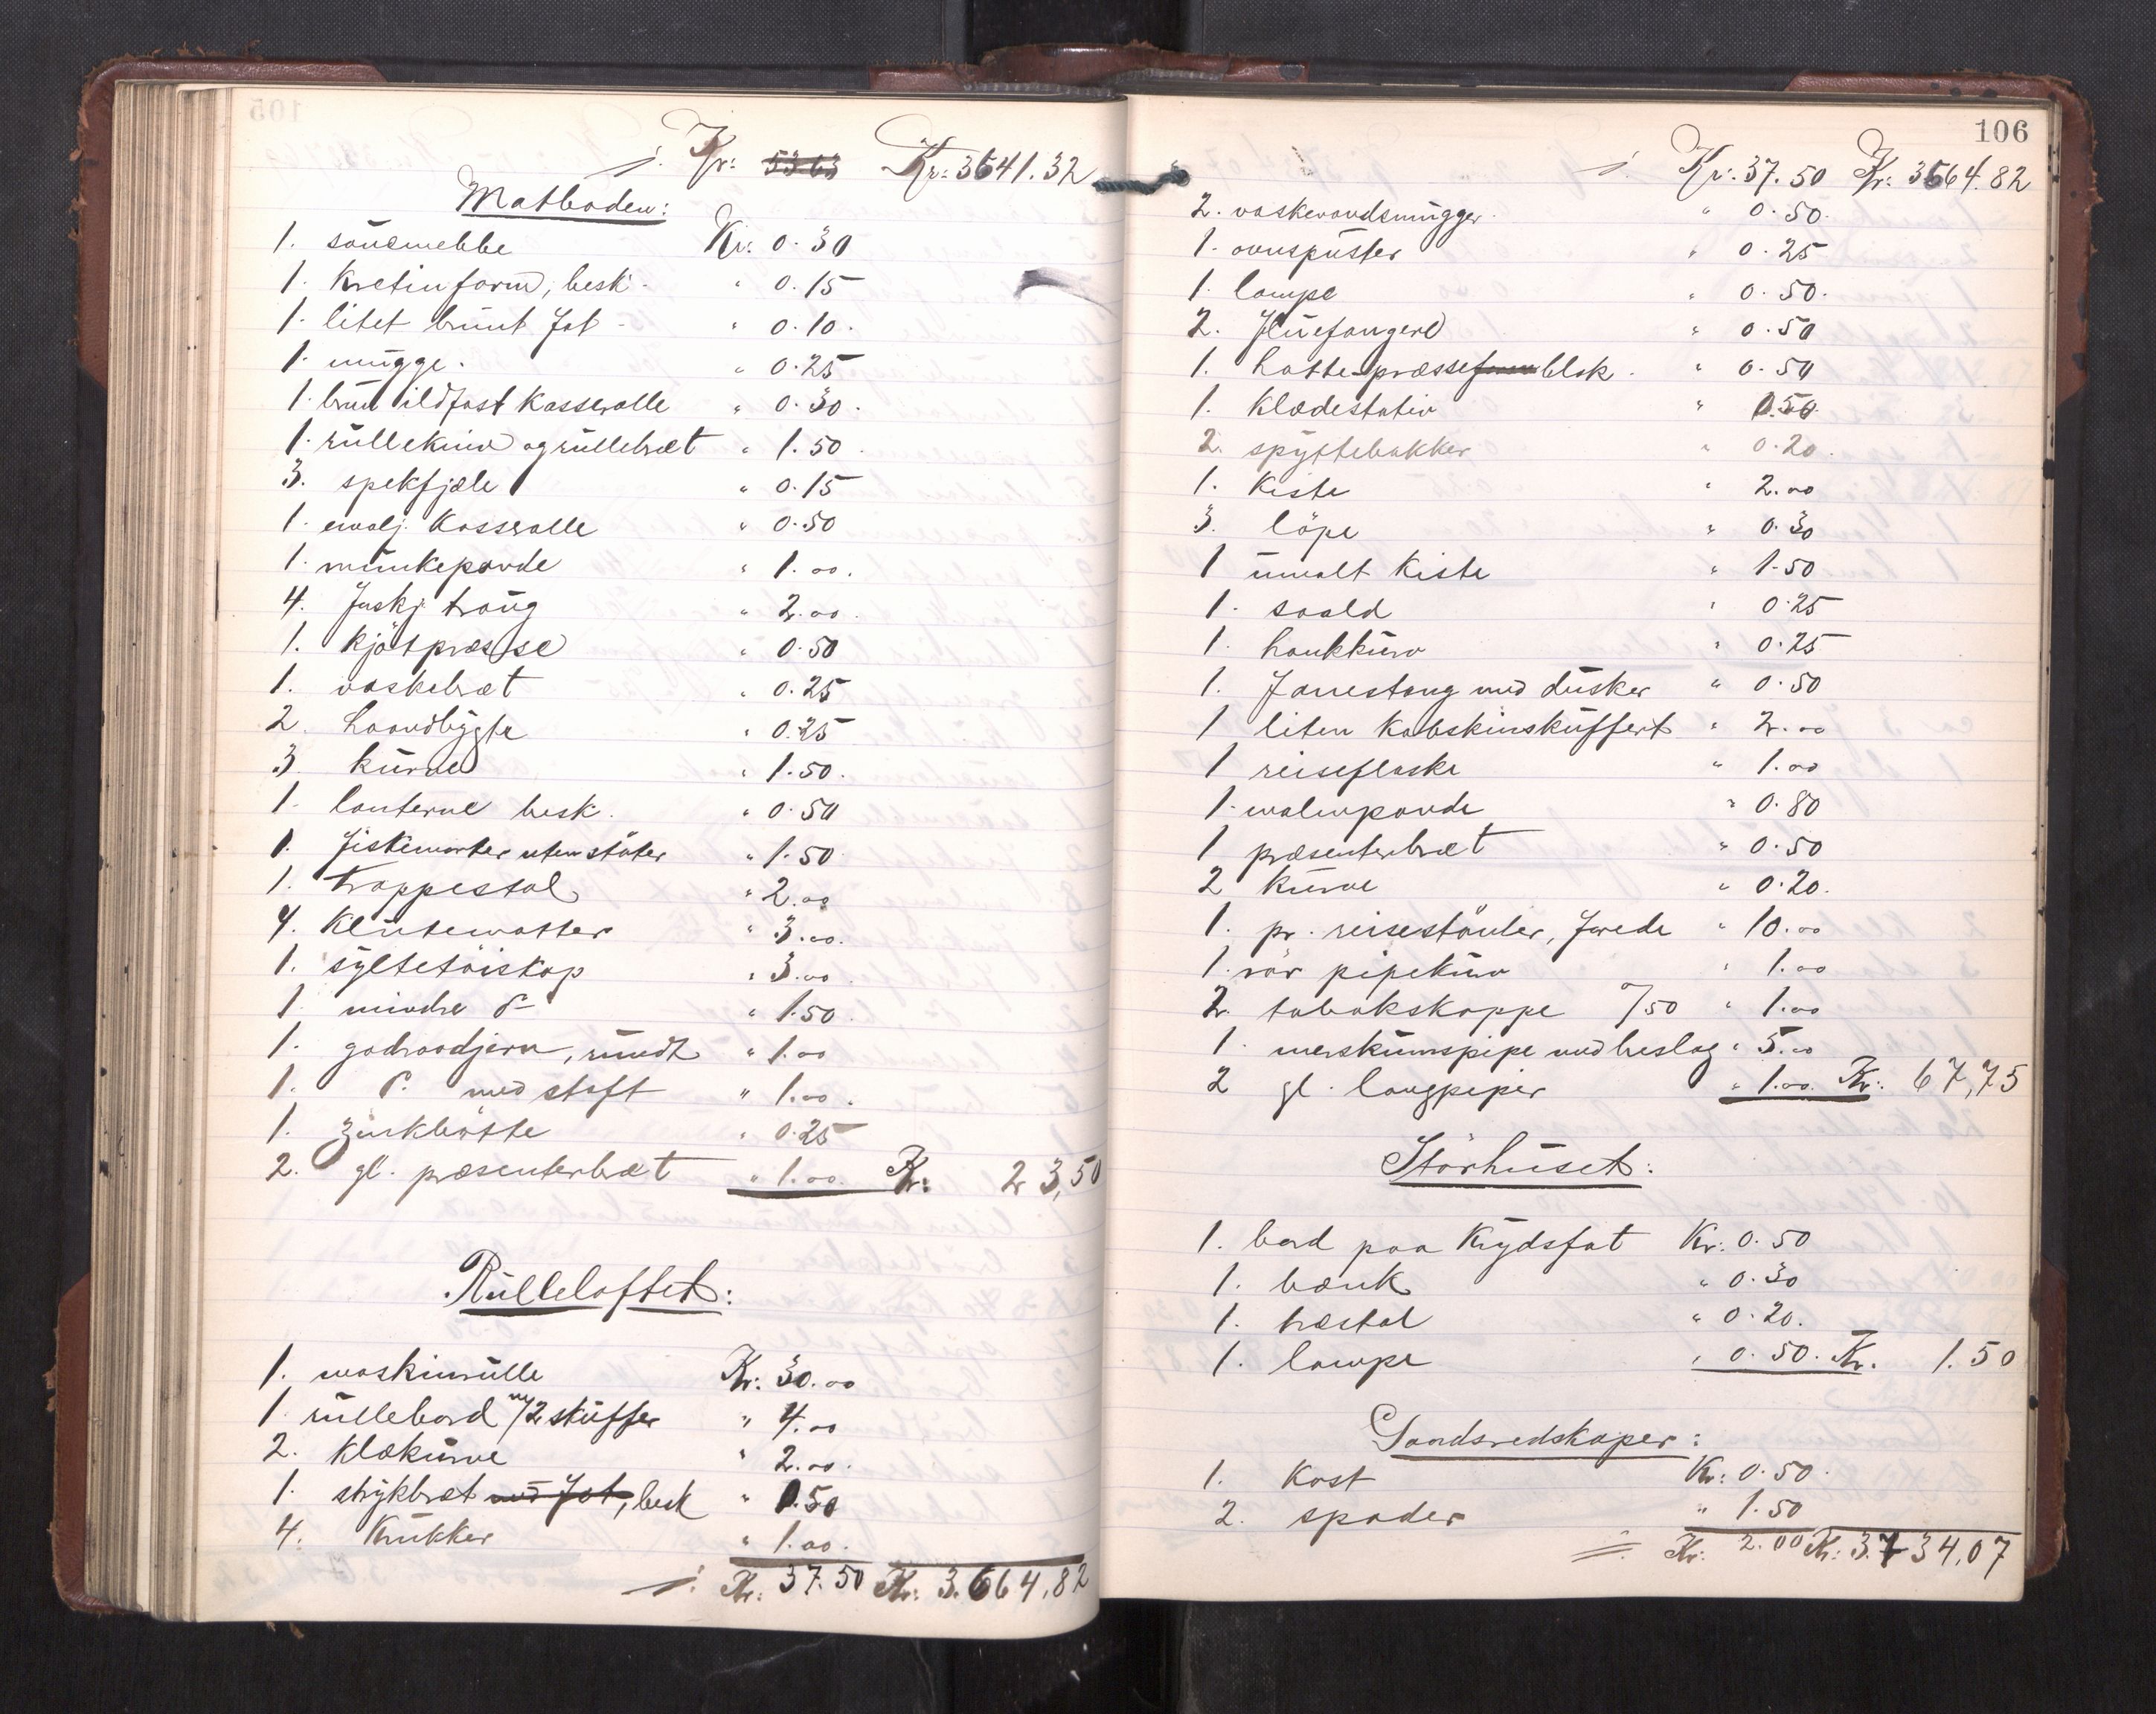 ÷ Kr: 5363 Kr: 3641.32
Matboden:
1. sausnebbe Kr. 0.30
1. Kretinform, besk. " 0.15
1. litet brunt fat " 0.10.
1. mugge. " 0.25
1. brun ildfast Kasserolle " 0.30.
1. rullekniv og rullebræt " 1.50.
3. spekfjæle " 0.15
1. emalj. Kasserolle " 0.50
1. munkepande " 1.00.
4. firskj. traug " 2.00.
1. Kjøtpresse " 0.50
1. vaskebræt " 0.25
2. haandbøgte " 0.25
3. kurve " 1.50.
1. lanterne besk. " 0.50
1. fiskemorter uten støter " 1.50.
1. trappestol " 2.00
4. Klutematter " 3.00.
1. syltetøiskap " 3.00.
1. mindre d° " 1.50.
1. godraadjern, rundt " 1.00
1. d° med skaft " 1.00.
1. zinkbøtte " 0.25
2. gl. præsenterbræt " 1.00. Kr: 23,50
Rulleloftet:
1. maskinrulle Kr: 30.00
1. rullebord m/2 skuffer " 4.00
2. Klækurve " 2.00.
1. strykbræt med fot, besk " 0.50
4. Krukker " 1.00.
÷ Kr. 37.50 Kr. 3.664,82
106
÷ Kr. 37.50 Kr: 3664.82
2. vaskevandsmugger " 0.50.
1. ovnspuster " 0.25
1. lampe " 0.50.
2. fluefangere " 0.50
1. hattepresseform blok. " 0.50
1. Klædestativ " 0.50.
2. spyttebakker " 0.20.
1. Kiste " 2.00
3. løpe " 0.30
1 umalt Kiste " 1.50
1. saald " 0.25
1. hankkurv " 0.25
1. fanestang med dusker " 0.50
1 liten Kobskinskuffert " 2.00
1 reiseflaske " 1.00
1. malmpande " 0.80
1 præsenterbræt " 0.50
2 Kurve " 0.20.
1. pr. reisestøvler, forede " 10.00
1. rør pipekurv " 1.00
2. tobakskoppe a/50 " 1.00
1. merskumspipe med beslag " 5.00
2 gl. langpiper " 1.00. Kr: 67,75
Størhuset:
1. bord paa Krydsfot Kr: 0.50
1. bænk " 0.30
1. træstol " 0.20.
1. lampe " 0.50. Kr. 1.50
Sandsredskaper:
1. Kost Kr: 0.50.
2. spader " 1.50
÷ Kr: 2.00 Kr: 3.734,07